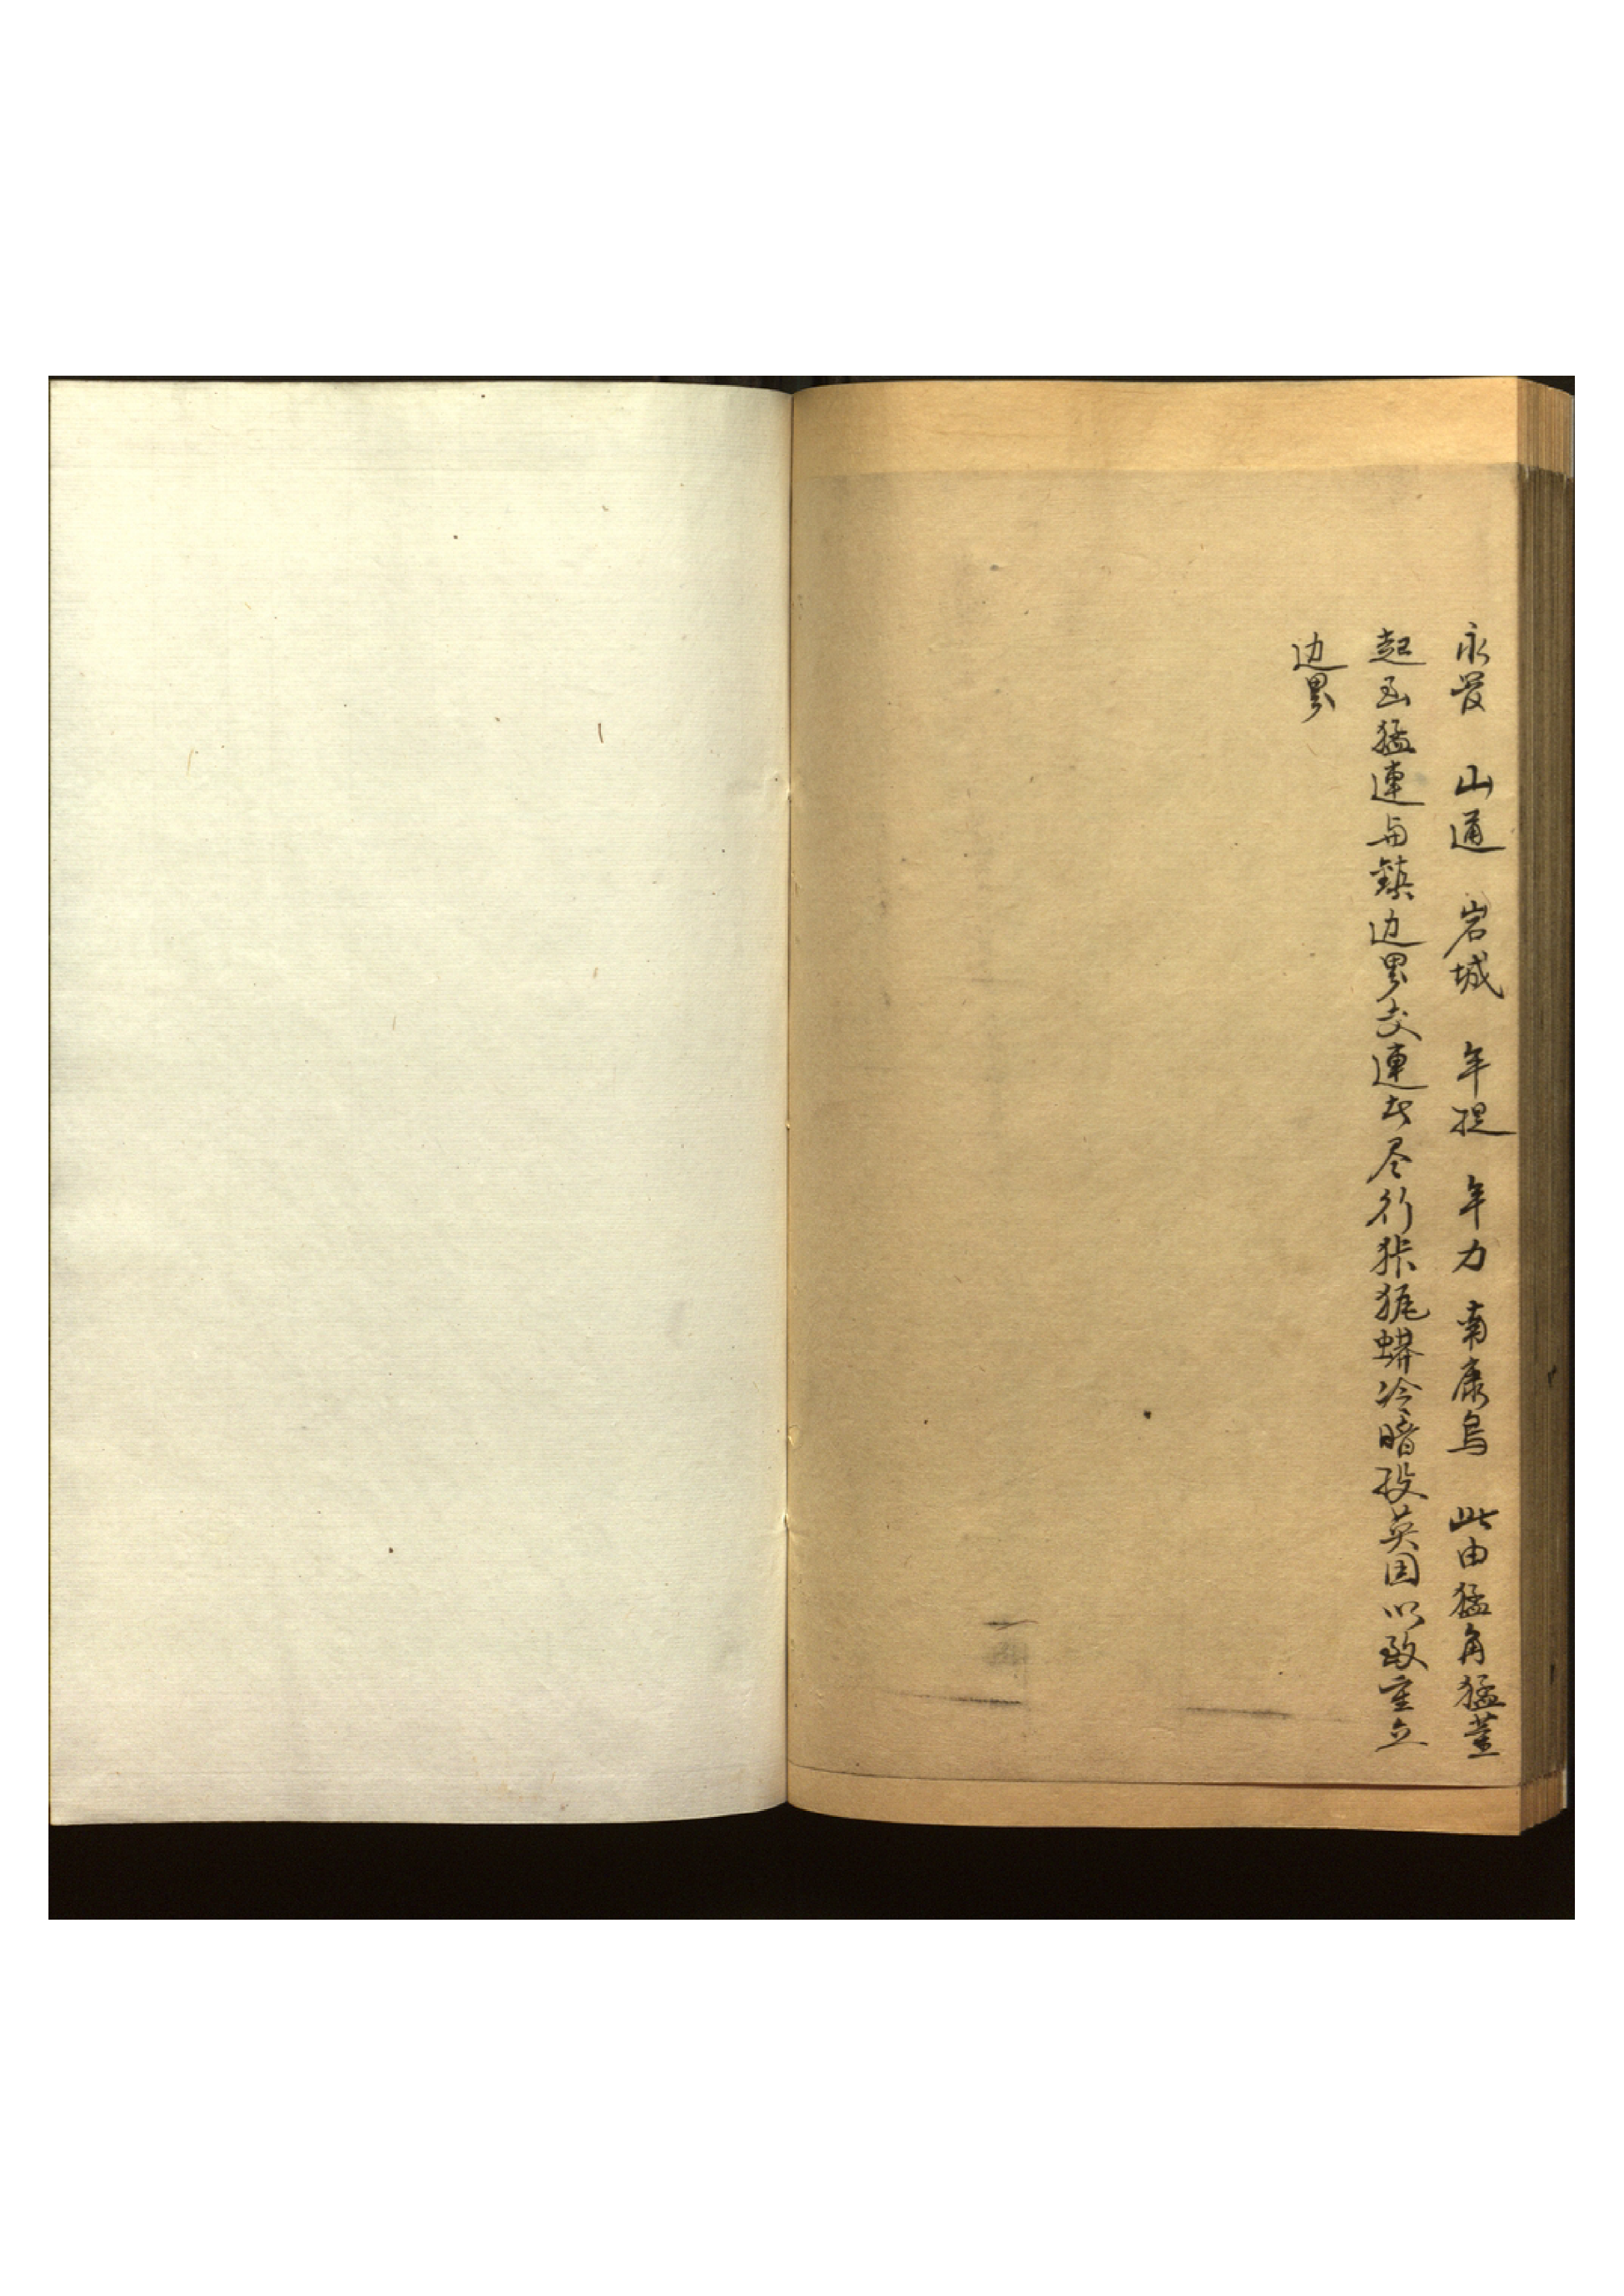 永管 山通 岩城 年提 年力 南康烏 此由猛角猛董
起至猛連与鎮边界交連处尽行狇狔蟒冷暗投英国以致重立
边界